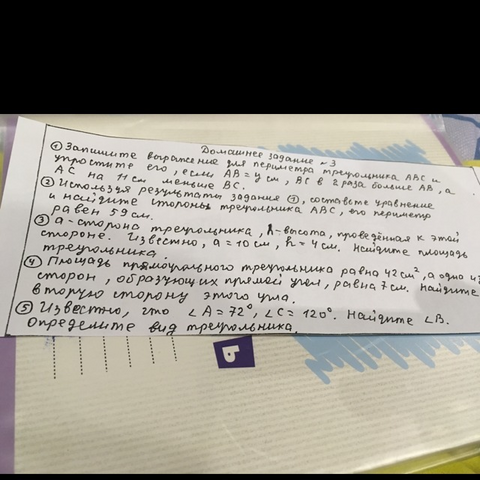 Домашнее задание №3
① Запишите выражение для периметра треугольника ABC и
упростите его, если AB = y см, BC в 2 раза больше AB, а
AC на 11 см меньше BC.
② Используя результаты задания ①, составьте уравнение
и найдите стороны треугольника ABC, его периметр
равен 59 см.
③ a - сторона треугольника, h - высота, проведённая к этой
стороне. Известно, a = 10 см, h = 4 см. Найдите площадь
треугольника.
④ Площадь прямоугольного треугольника равна 42 см², а одна из
сторон, образующих прямой угол, равна 7 см. Найдите
вторую сторону этого угла.
⑤ Известно, что ∠A = 72°, ∠C = 120°. Найдите ∠B.
Определите вид треугольника.
Ъ